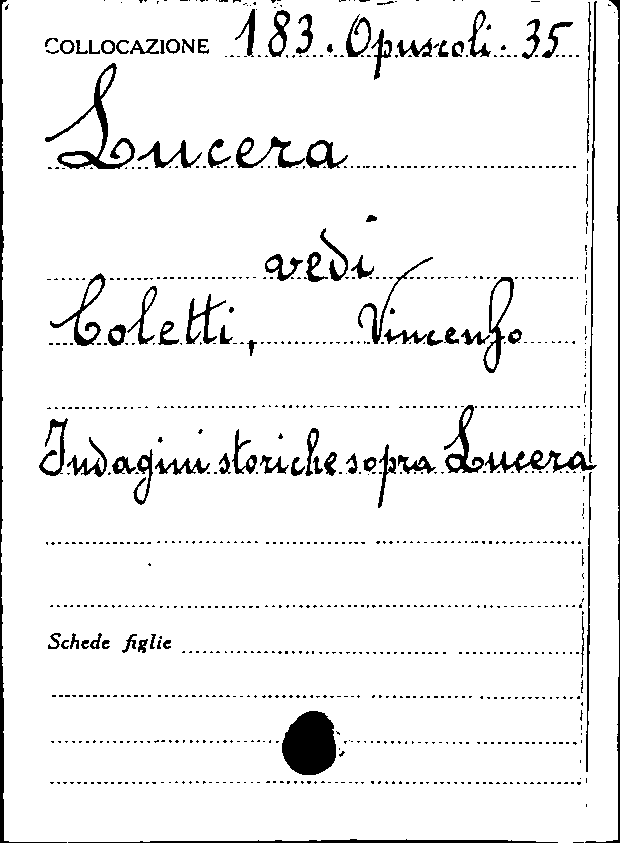 COLLOCAZIONE 183. Opuscoli. 35
Lucera
vedi
Coletti, Vincenzo
Indagini storiche sopra Lucera
Schede figlie